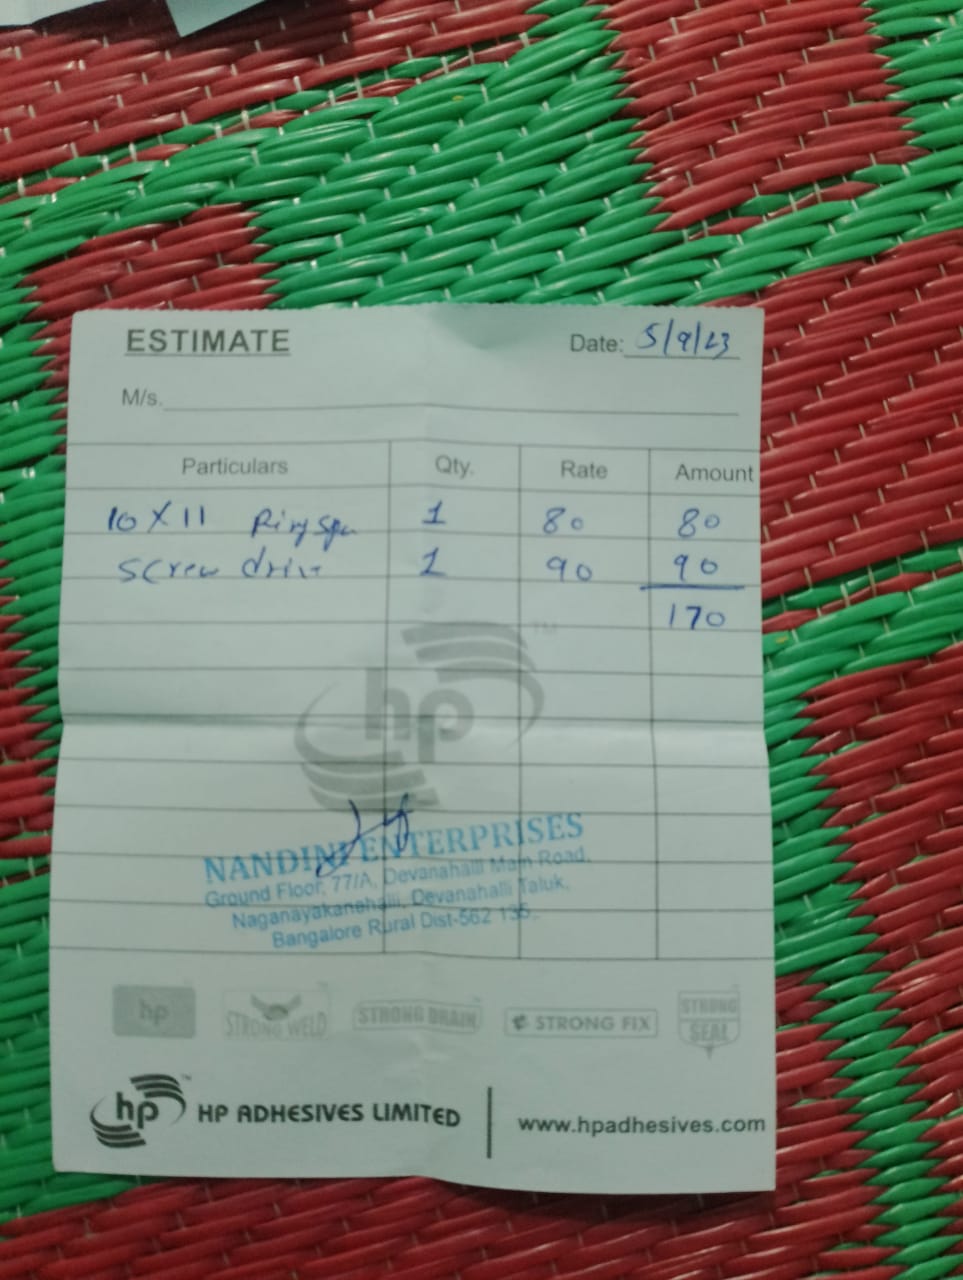 ESTIMATE Date: 5/9/23
M/s.
Particulars Qty. Rate Amount
10 X 11 Ring Spn 1 80 80
Screw driv 1 90 90
170
hp
NANDINI ENTERPRISES
Ground Floor, 77/A, Devanahalli Main Road,
Naganayakanahalli, Devanahalli Taluk,
Bangalore Rural Dist-562 135.
hp STRONG WELD STRONG DRAIN STRONG FIX STRONG SEAL
hp HP ADHESIVES LIMITED www.hpadhesives.com